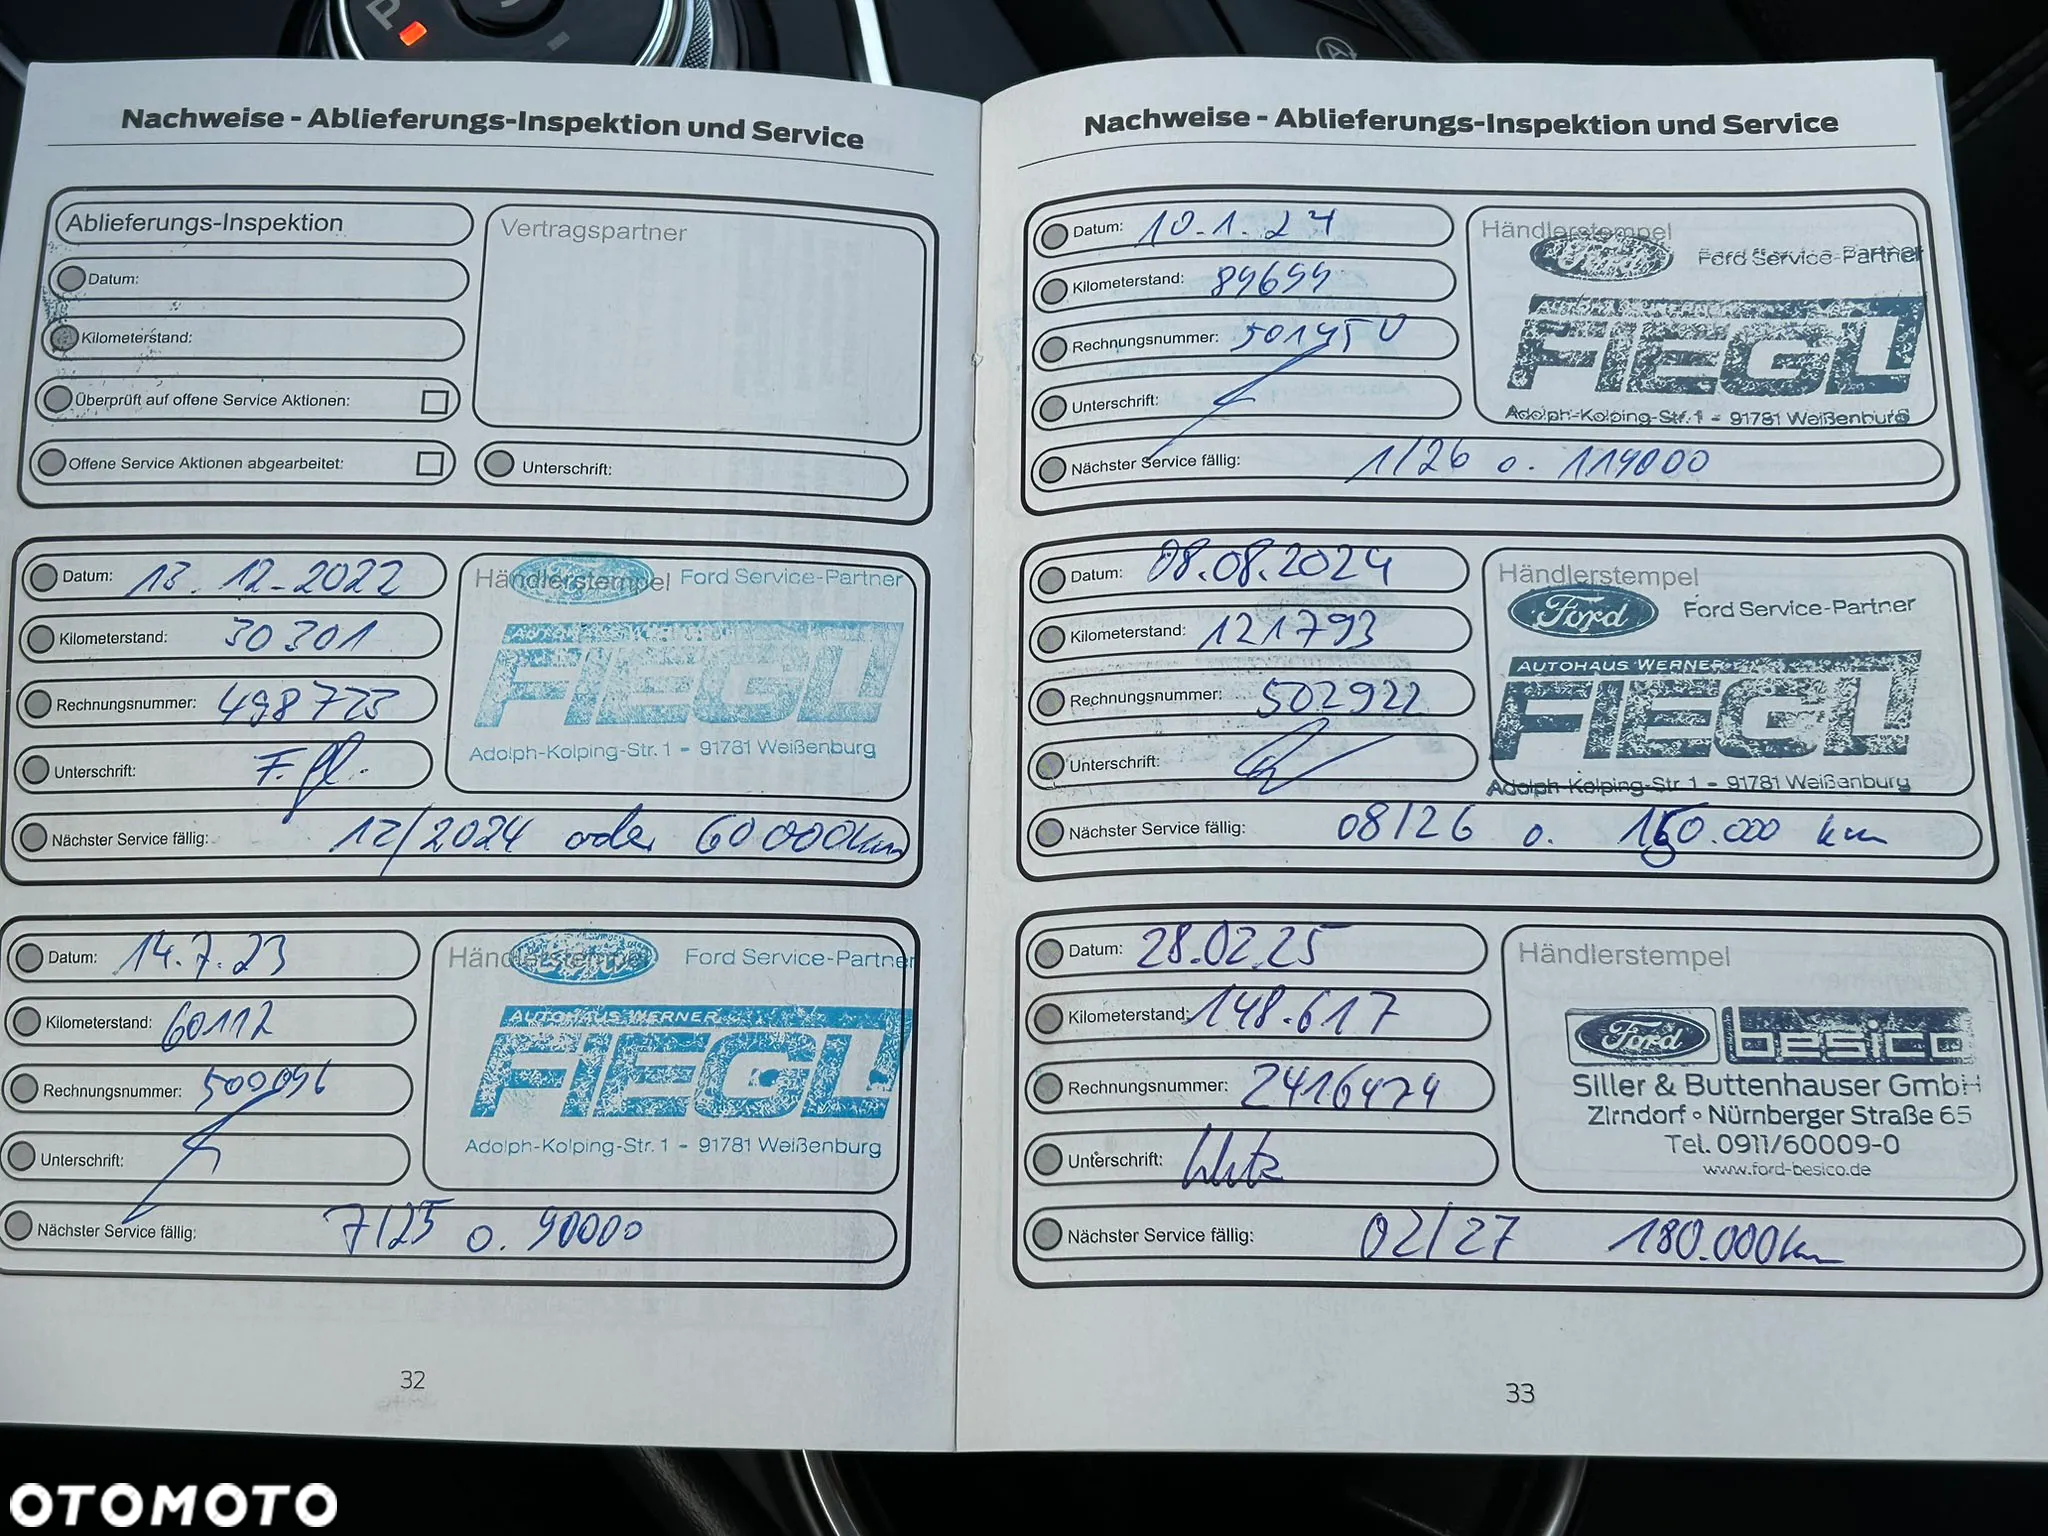 P
A
Nachweise - Ablieferungs-Inspektion und Service
Ablieferungs-Inspektion
Vertragspartner
Datum:
Kilometerstand:
Überprüft auf offene Service Aktionen:
Offene Service Aktionen abgearbeitet:
Unterschrift:
Datum: 13.12-2022
Kilometerstand: 30301
Rechnungsnummer: 498773
Unterschrift:
Nächster Service fällig: 12/2024 oder 60000km
Händlerstempel
Ford Service-Partner
AUTOHAUS WERNER
FIEGL
Adolph-Kolping-Str. 1 - 91781 Weißenburg
Datum: 14.7.23
Kilometerstand: 60112
Rechnungsnummer: 500096
Unterschrift:
Nächster Service fällig: 7/25 o. 90000
Händlerstempel
Ford Service-Partner
AUTOHAUS WERNER
FIEGL
Adolph-Kolping-Str. 1 - 91781 Weißenburg
32
Nachweise - Ablieferungs-Inspektion und Service
Datum: 10.1.24
Kilometerstand: 89699
Rechnungsnummer:
Unterschrift:
Nächster Service fällig: 1/26 o. 119000
Händlerstempel
Ford Ford Service-Partner
AUTOHAUS WERNER
FIEGL
Adolph-Kolping-Str. 1 - 91781 Weißenburg
Datum: 08.08.2024
Kilometerstand: 121793
Rechnungsnummer: 502922
Unterschrift:
Nächster Service fällig: 08/26 o. 150.000 km
Händlerstempel
Ford Ford Service-Partner
AUTOHAUS WERNER
FIEGL
Adolph-Kolping-Str. 1 - 91781 Weißenburg
Datum: 28.02.25
Kilometerstand: 148.617
Rechnungsnummer: 2416474
Unterschrift:
Nächster Service fällig: 02/27 180.000km
Händlerstempel
Ford besico
Siller & Buttenhauser GmbH
Zirndorf • Nürnberger Straße 65
Tel. 0911/60009-0
www.ford-besico.de
33
OTOMOTO